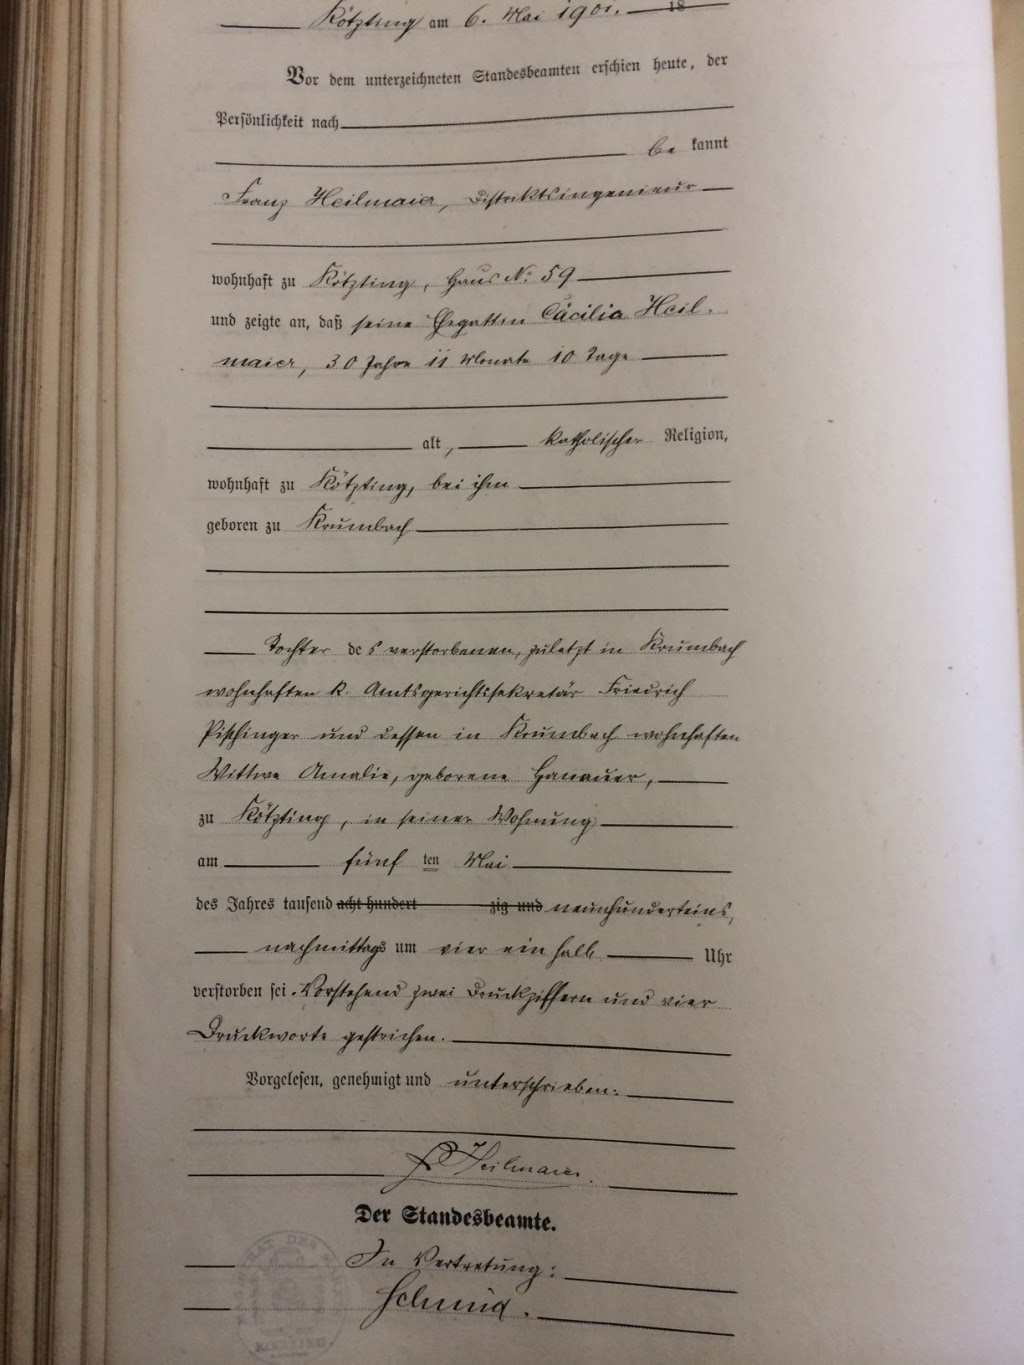 Kötzting am 6. Mai 1901. 18
Vor dem unterzeichneten Standesbeamten erschien heute, der
Persönlichkeit nach
be kannt
Franz Heilmaier, Distriktsingenieur
wohnhaft zu Kötzting, Haus No: 59
und zeigte an, daß seine Ehegattin Cäcilia Heil-
maier, 30 Jahre 11 Monate 10 Tage
alt, katholischer Religion,
wohnhaft zu Kötzting, bei ihm
geboren zu Krumbach
Tochter des verstorbenen, zuletzt in Krumbach
wohnhaften k. Amtsgerichtssekretär Friedrich
Pischinger und dessen in Krumbach wohnhaften
Wittwe Amalie, geborene Hanauer,
zu Kötzting, in seiner Wohnung
am fünf ten Mai
des Jahres tausend acht hundert zig und neunhunderteins,
nachmittags um vier ein halb Uhr
verstorben sei. Vorstehend zwei Druckziffern und vier
Druckworte gestrichen.
Vorgelesen, genehmigt und unterschrieben:
F Heilmaier.
Der Standesbeamte.
In Vertretung:
Schmid.
KÖTZTING